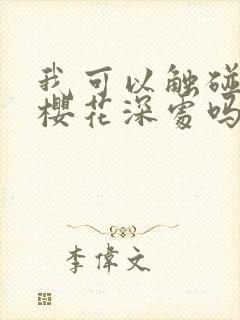 我可以触碰
樱花深处吗
李偉文